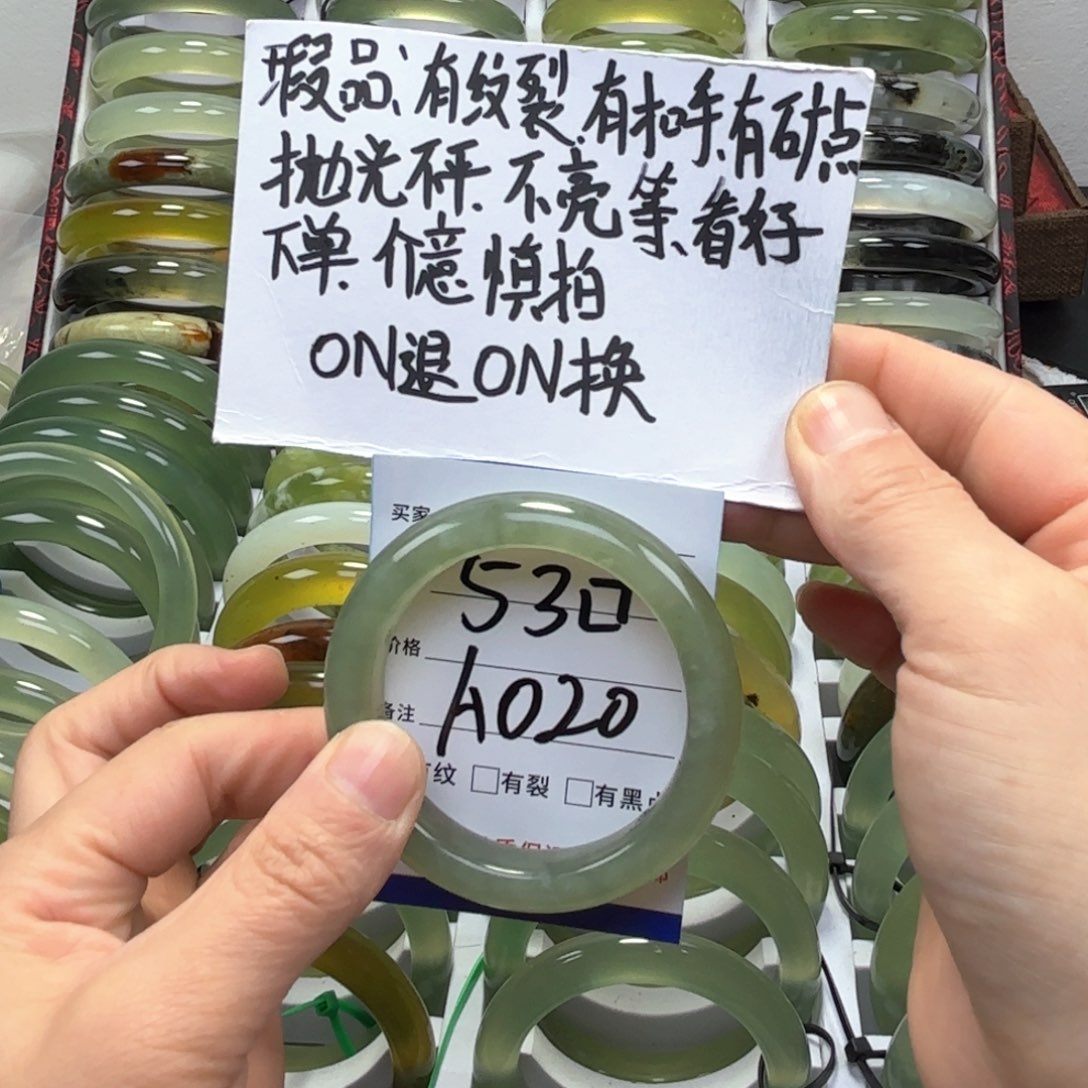 瑕品、有纹裂.有扣手.有矿点
抛光砰.不亮等、看好
下单.介意慎拍
ON退ON换
买家
530
价格
A020
备注
有纹 □有裂 □有黑